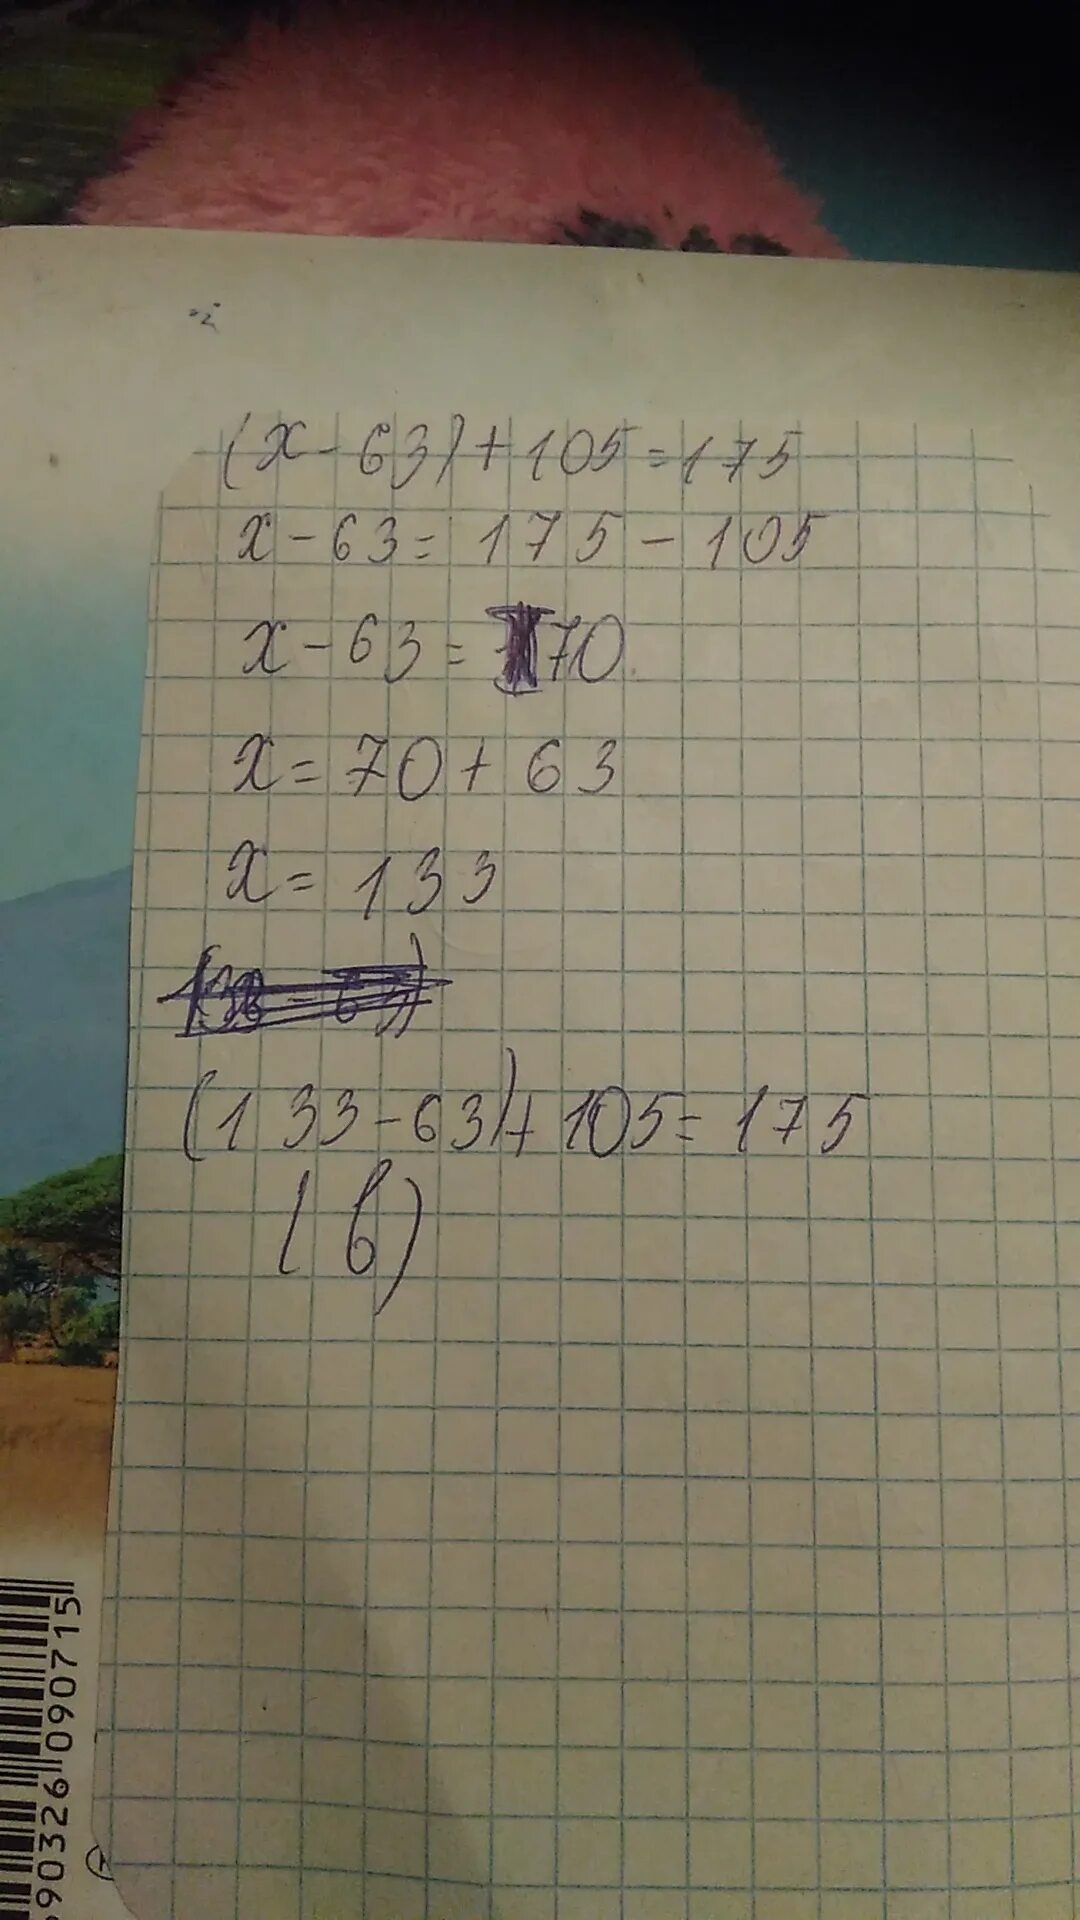 (x - 63) + 105 = 175
x - 63 = 175 - 105
x - 63 = 70
x = 70 + 63
x = 133
(133 - 63) + 105 = 175
(в)
90326 090715